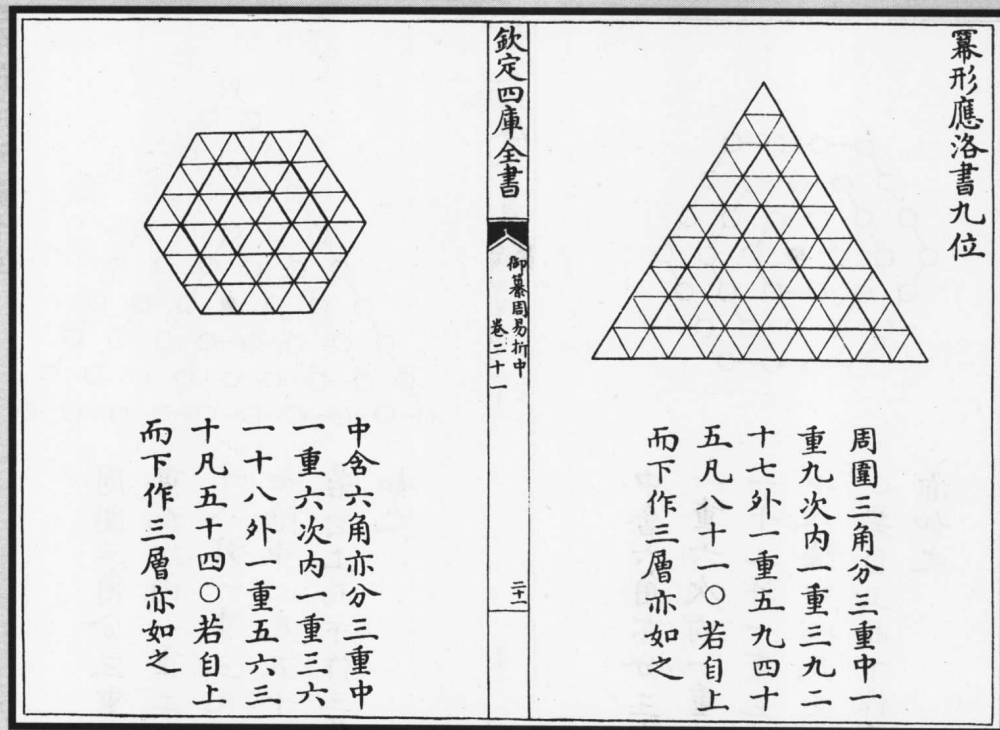 冪形應洛書九位
周圍三角分三重中一
重九次内一重三九二
十七外一重五九四十
五凡八十一〇若自上
而下作三層亦如之
欽定四庫全書
御纂周易折中
卷二十一
二十一
中含六角亦分三重中
一重六次内一重三六
一十八外一重五六三
十凡五十四〇若自上
而下作三層亦如之